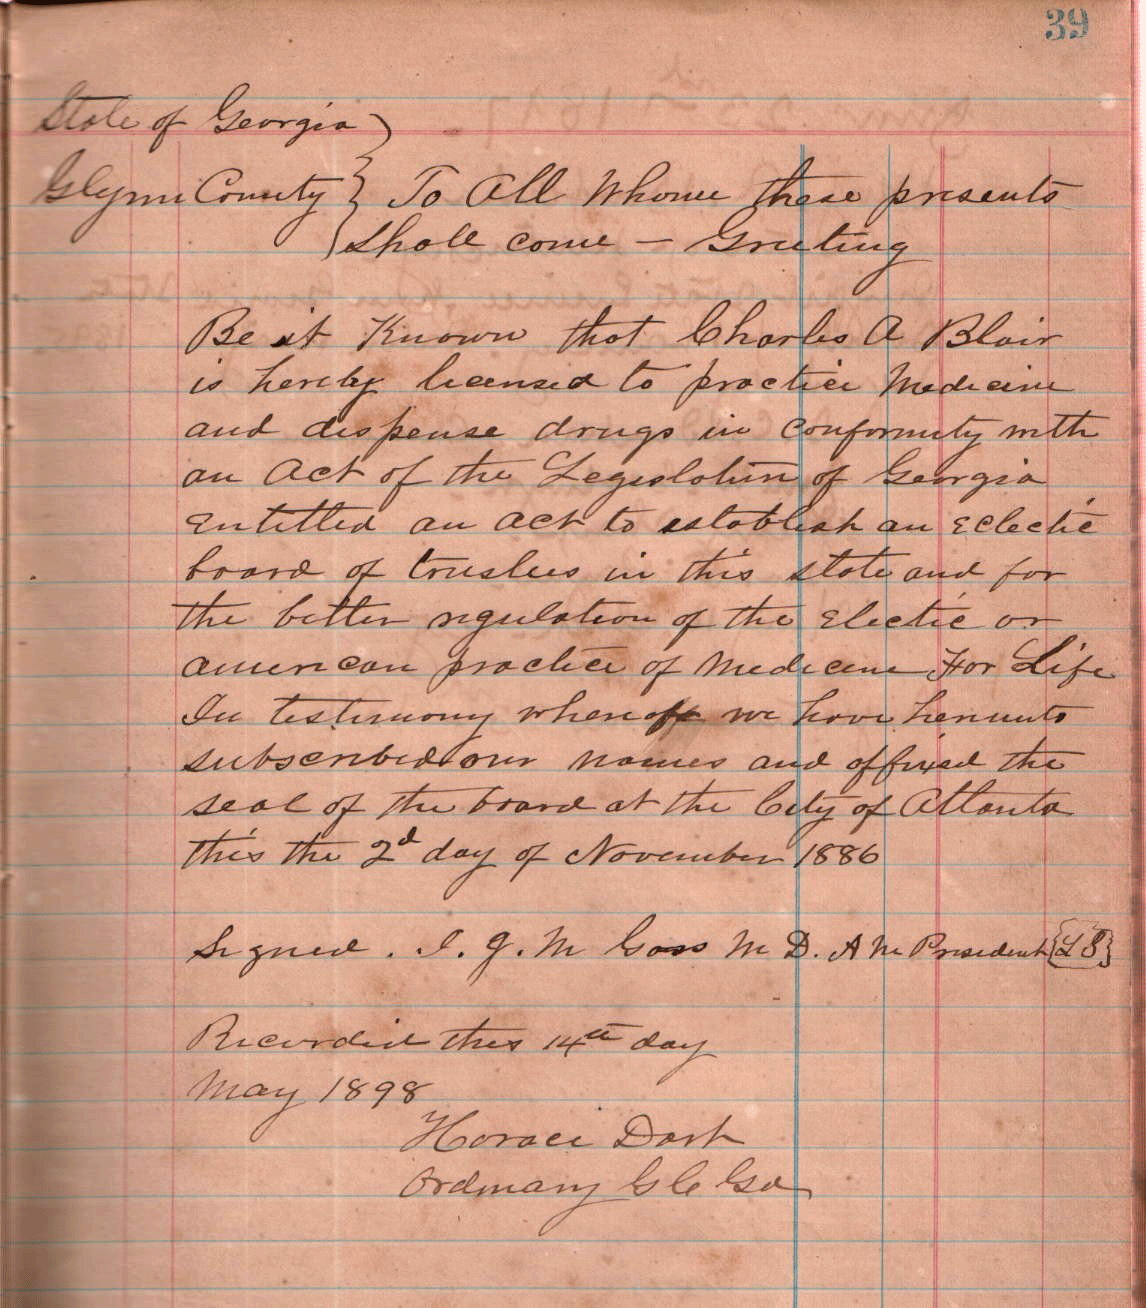 39
State of Georgia
Glynn County } To All Whome these presents
shall come — Greeting
Be it Known that Charles A Blair
is hereby licensed to practice Medicine
and dispense drugs in conformity with
an Act of the Legislature of Georgia
Entitled an act to establish an Eclectic
board of trustees in this state and for
the better regulation of the Electic or
american practice of Medicine For Life
In testimony whereoff we have hereunto
subscribed our names and affixed the
seal of the board at the City of Atlanta
this the 2d day of November 1886
Signed . I. J. M Goss M D. A M President {L S}
Recorded this 14th day
May 1898
Horace Dart
Ordinary G C Ga